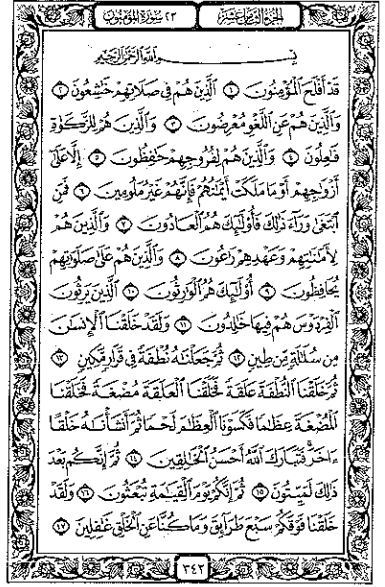 الجزء الثامن عشر ٢٣ سورة المؤمنون
بسم الله الرحمن الرحيم
قَدْ أَفْلَحَ الْمُؤْمِنُونَ ١ الَّذِينَ هُمْ فِي صَلَاتِهِمْ خَاشِعُونَ ٢
وَالَّذِينَ هُمْ عَنِ اللَّغْوِ مُعْرِضُونَ ٣ وَالَّذِينَ هُمْ لِلزَّكَوٰةِ
فَاعِلُونَ ٤ وَالَّذِينَ هُمْ لِفُرُوجِهِمْ حَافِظُونَ ٥ إِلَّا عَلَىٰ
أَزْوَاجِهِمْ أَوْ مَا مَلَكَتْ أَيْمَانُهُمْ فَإِنَّهُمْ غَيْرُ مَلُومِينَ ٦ فَمَنِ
ابْتَغَىٰ وَرَاءَ ذَٰلِكَ فَأُولَٰئِكَ هُمُ الْعَادُونَ ٧ وَالَّذِينَ هُمْ
لِأَمَانَاتِهِمْ وَعَهْدِهِمْ رَاعُونَ ٨ وَالَّذِينَ هُمْ عَلَىٰ صَلَوَاتِهِمْ
يُحَافِظُونَ ٩ أُولَٰئِكَ هُمُ الْوَارِثُونَ ١٠ الَّذِينَ يَرِثُونَ
الْفِرْدَوْسَ هُمْ فِيهَا خَالِدُونَ ١١ وَلَقَدْ خَلَقْنَا الْإِنسَانَ
مِن سُلَالَةٍ مِّن طِينٍ ١٢ ثُمَّ جَعَلْنَاهُ نُطْفَةً فِي قَرَارٍ مَّكِينٍ ١٣
ثُمَّ خَلَقْنَا النُّطْفَةَ عَلَقَةً فَخَلَقْنَا الْعَلَقَةَ مُضْغَةً فَخَلَقْنَا
الْمُضْغَةَ عِظَامًا فَكَسَوْنَا الْعِظَامَ لَحْمًا ثُمَّ أَنشَأْنَاهُ خَلْقًا
ءَاخَرَ فَتَبَارَكَ اللَّهُ أَحْسَنُ الْخَالِقِينَ ١٤ ثُمَّ إِنَّكُم بَعْدَ
ذَٰلِكَ لَمَيِّتُونَ ١٥ ثُمَّ إِنَّكُمْ يَوْمَ الْقِيَامَةِ تُبْعَثُونَ ١٦ وَلَقَدْ
خَلَقْنَا فَوْقَكُمْ سَبْعَ طَرَائِقَ وَمَا كُنَّا عَنِ الْخَلْقِ غَافِلِينَ ١٧
٣٤٢